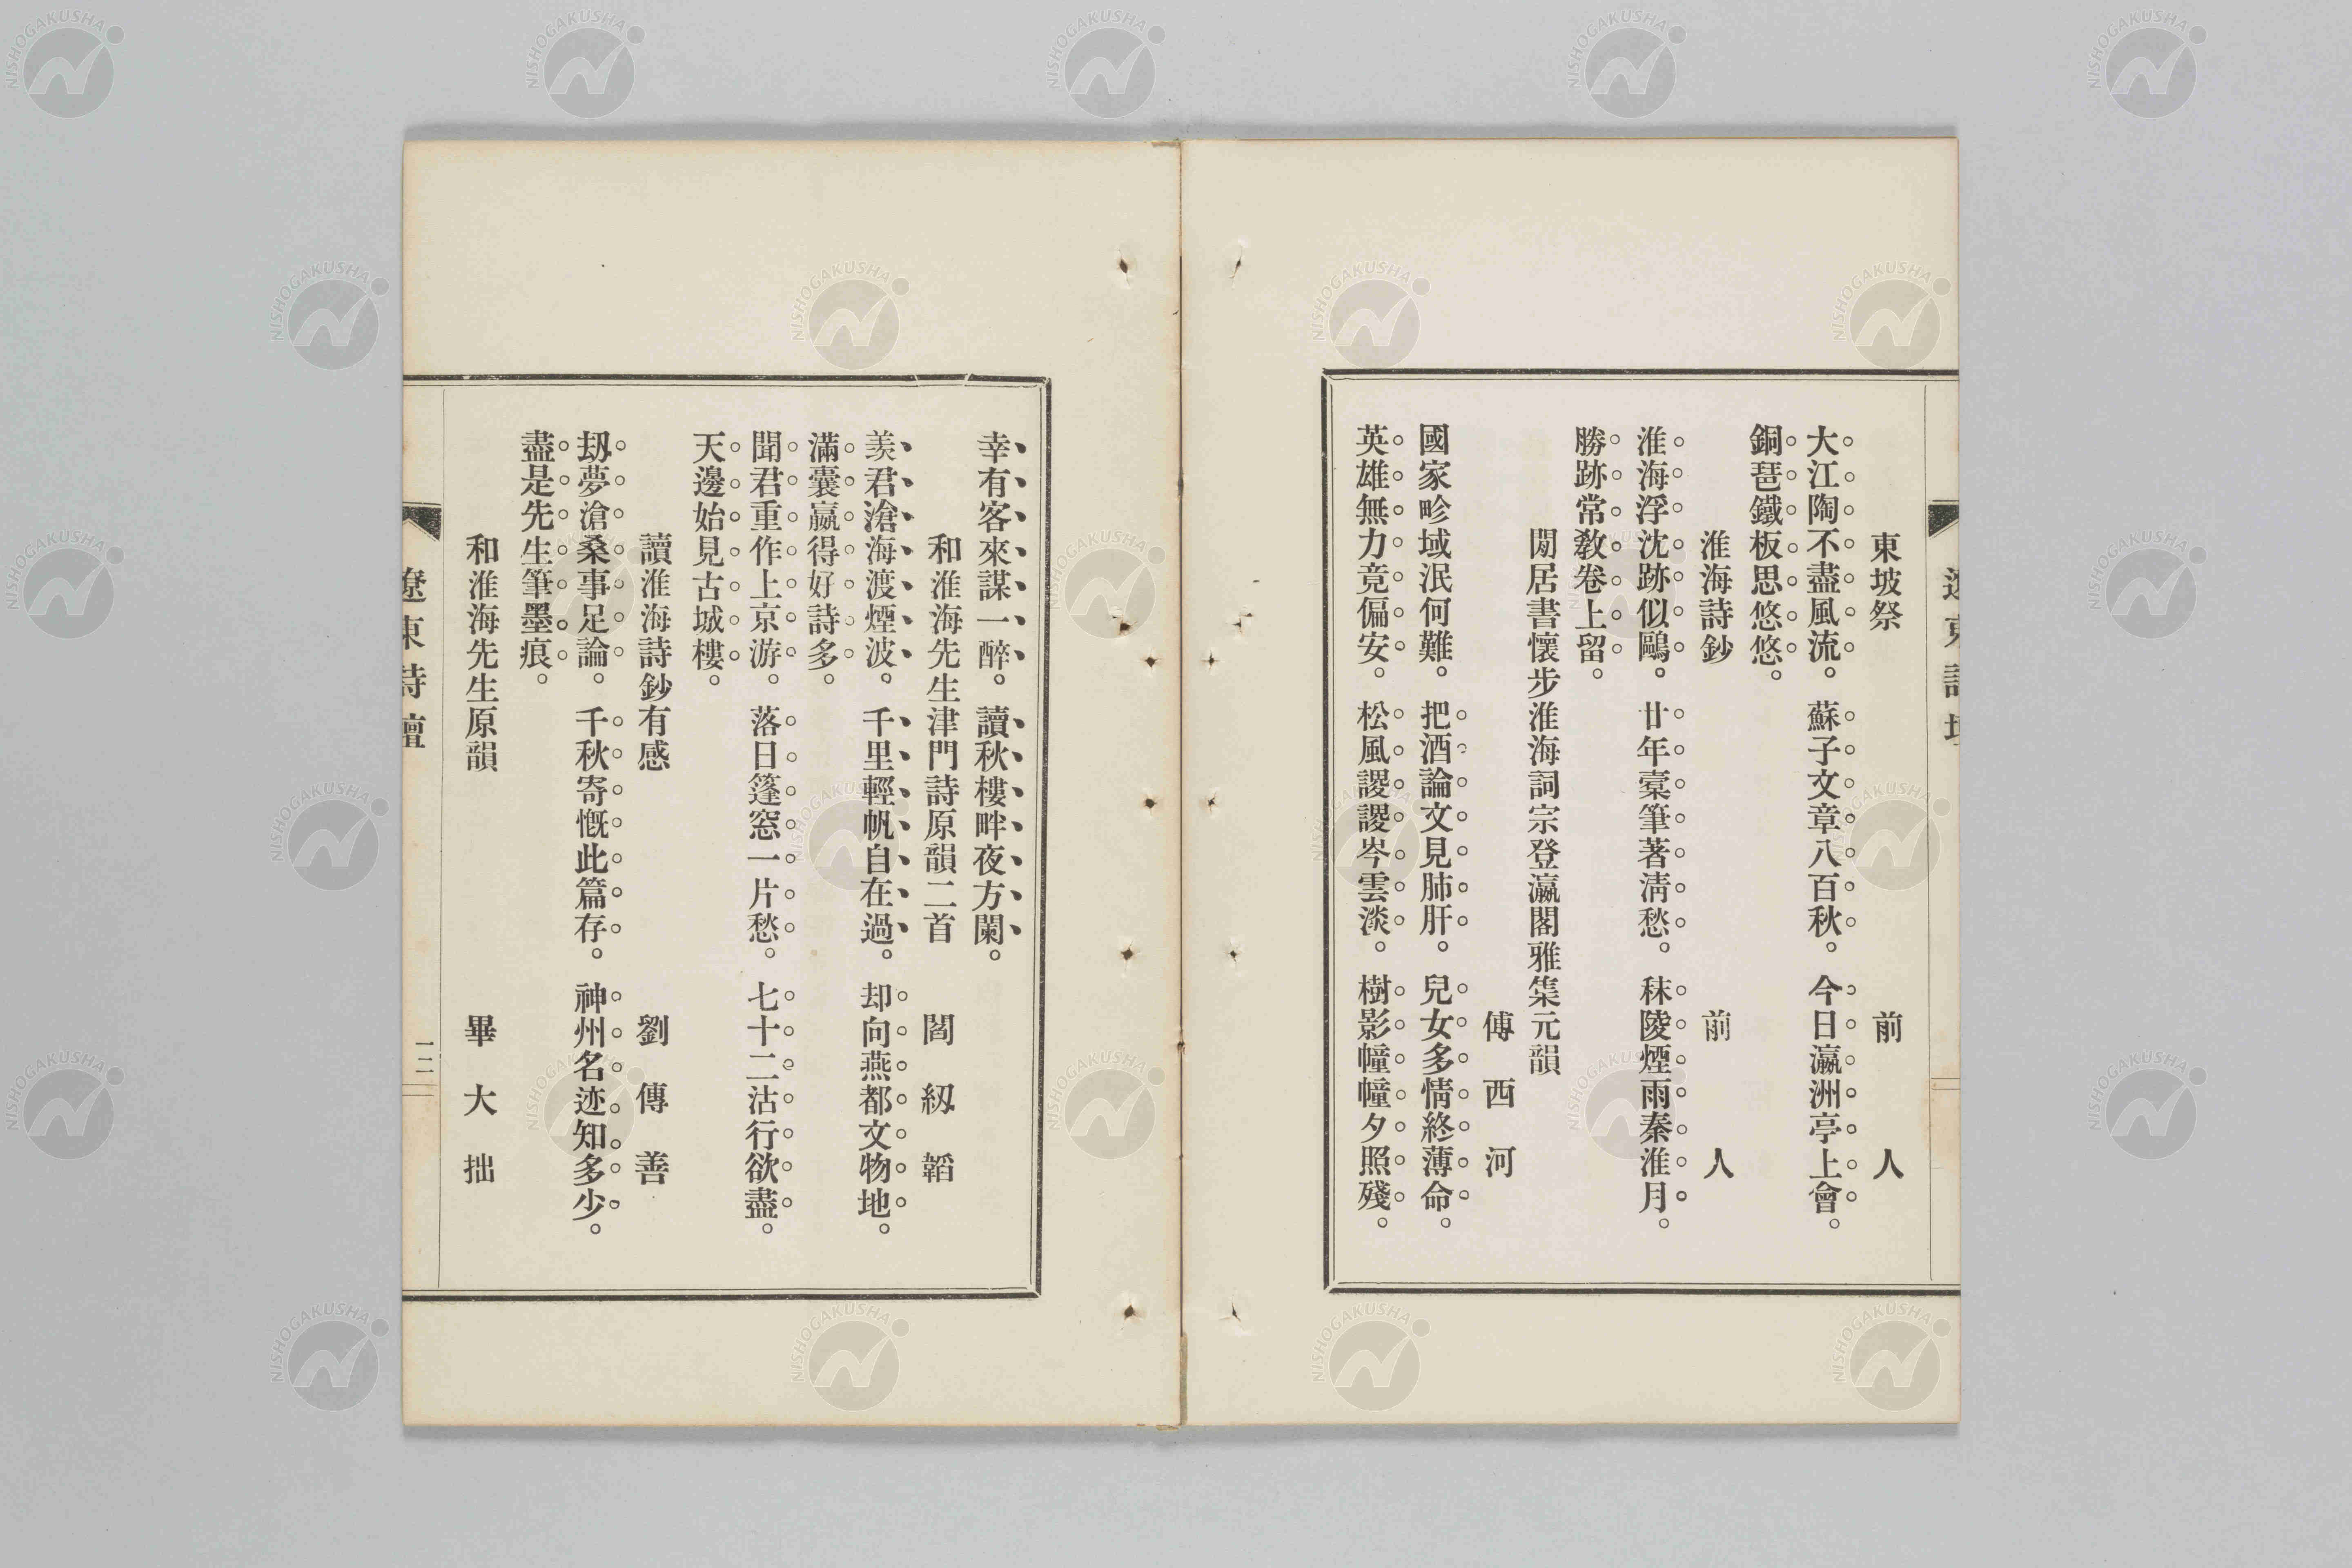 遼東詩壇
東坡祭　前人
大江陶不盡風流。蘇子文章八百秋。今日瀛洲亭上會。
銅琶鐵板思悠悠。
淮海詩鈔　前人
淮海浮沈跡似鷗。廿年橐筆著淸愁。秣陵煙雨秦淮月。
勝跡常敎卷上留。
閒居書懷步淮海詞宗登瀛閣雅集元韻
傅西河
國家畛域泯何難。把酒論文見肺肝。兒女多情終薄命。
英雄無力竟偏安。松風謖謖岑雲淡。樹影幢幢夕照殘。
幸有客來謀一醉。讀秋樓畔夜方闌。
和淮海先生津門詩原韻二首　閻紉韜
羨君滄海渡煙波。千里輕帆自在過。却向燕都文物地。
滿囊嬴得好詩多。
聞君重作上京游。落日篷窓一片愁。七十二沽行欲盡。
天邊始見古城樓。
讀淮海詩鈔有感　劉傳善
刼夢滄桑事足論。千秋寄慨此篇存。神州名迹知多少。
盡是先生筆墨痕。
和淮海先生原韻　畢大拙
遼東詩壇　一二
NISHOGAKUSHA